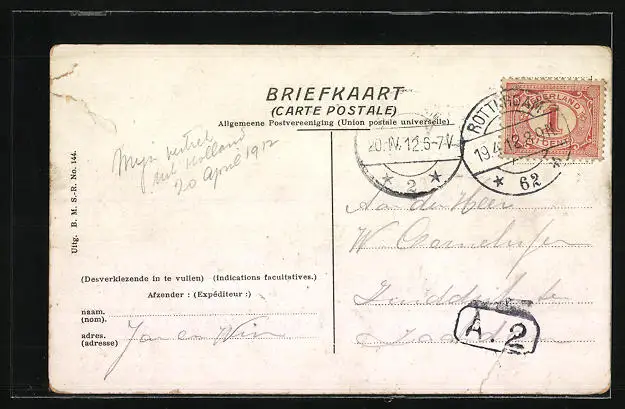 BRIEFKAART
(CARTE POSTALE)
Algemeene Postvereeniging (Union postale universelle)
NEDERLAND
1
CENT
ROTTERDAM
19.4.12.8
62
20.IV.12.6-7V
2
Mijn vertrek
uit Holland
20 April 1912
Uitg. B. M. S.-R. No. 144.
Aan den Heer
W
(Desverkiezende in te vullen) (Indications facultatives.)
Afzender : (Expéditeur :)
naam.
(nom).
adres.
(adresse)
Jan en Wim
A. 2